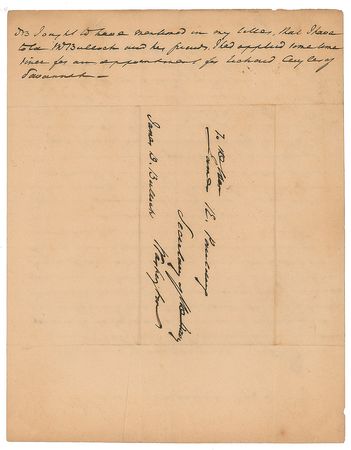 NB I ought to have mentioned in my letter, that I have
told Mr Bullock and his friends, I had applied some time
since for an appointment for Richard Cuyler of
Savannah —
To the Hon
James K. Paulding
Secretary of the Navy
Washington
James D. Bullock